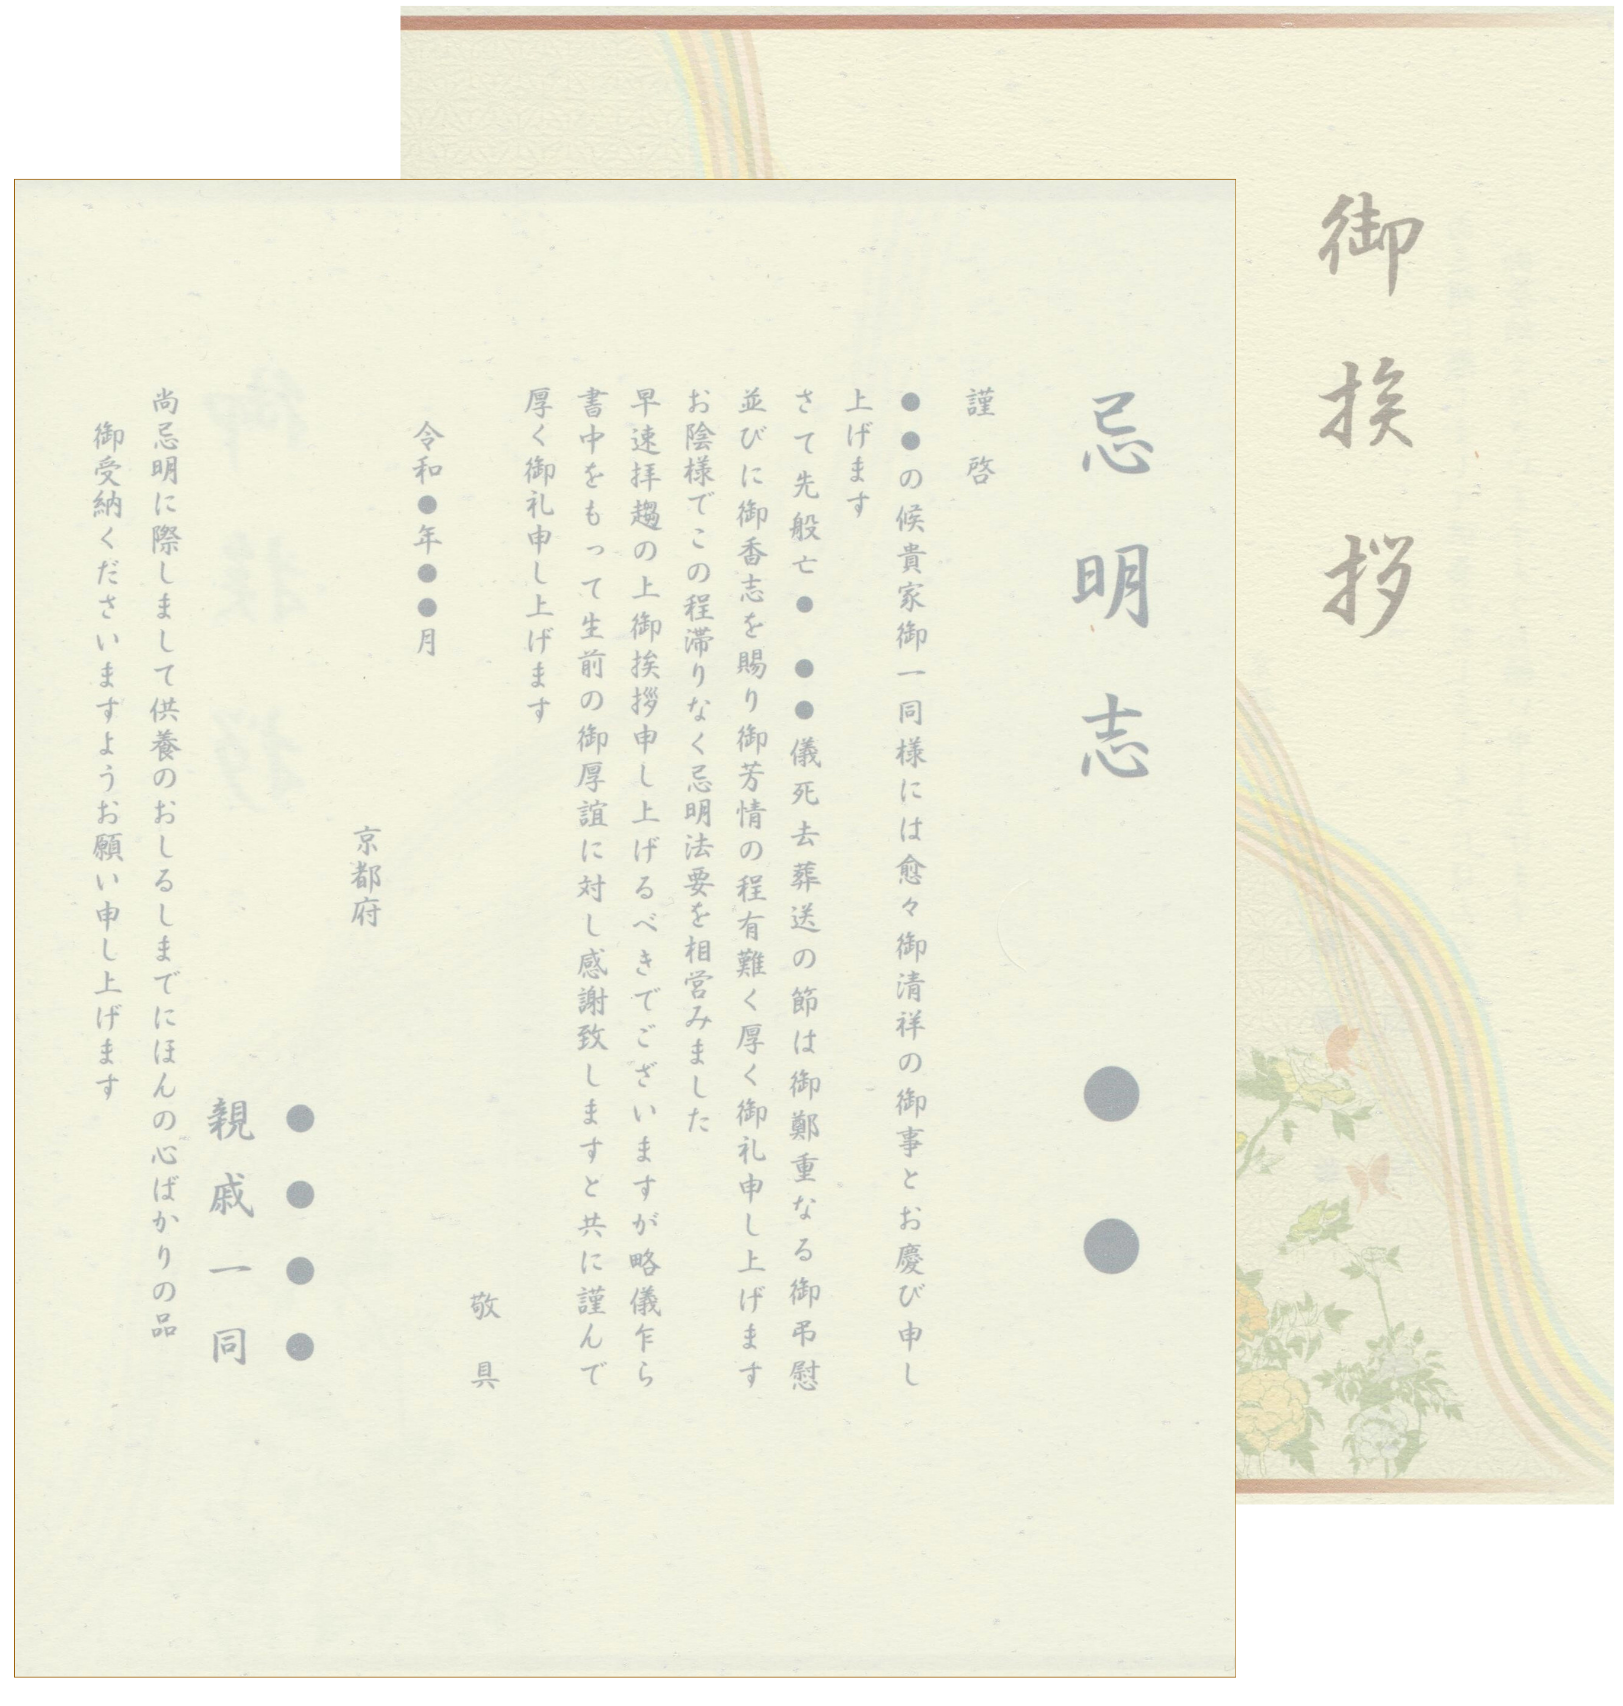 御挨拶
忌明志 ●●
謹啓
●●の候貴家御一同様には愈々御清祥の御事とお慶び申し
上げます
さて先般亡● ●●儀死去葬送の節は御鄭重なる御弔慰
並びに御香志を賜り御芳情の程有難く厚く御礼申し上げます
お陰様でこの程滞りなく忌明法要を相営みました
早速拝趨の上御挨拶申し上げるべきでございますが略儀乍ら
書中をもって生前の御厚誼に対し感謝致しますと共に謹んで
厚く御礼申し上げます
敬具
令和●年●●月
京都府
●●●●
親戚一同
尚忌明に際しまして供養のおしるしまでにほんの心ばかりの品
御受納くださいますようお願い申し上げます